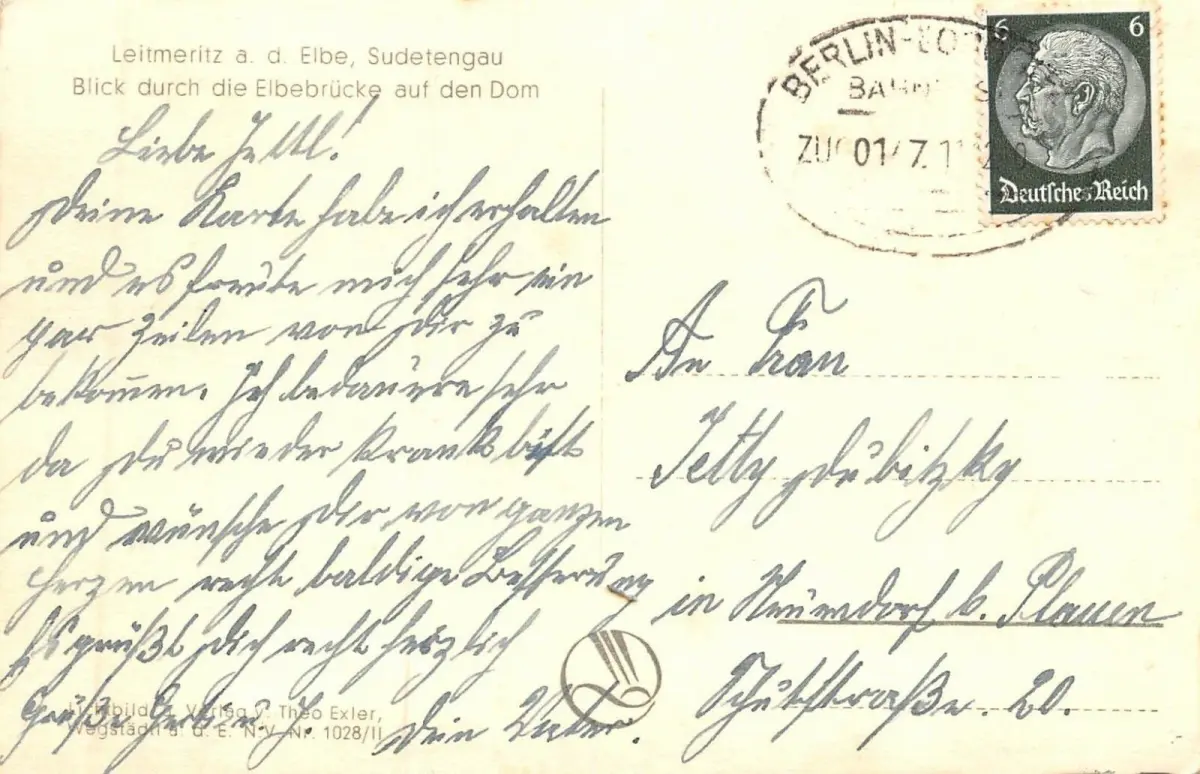 Leitmeritz a. d. Elbe, Sudetengau
Blick durch die Elbebrücke auf den Dom
Liebe Jettl!
Deine Karte habe ich erhalten
und es freute mich sehr ein
par Zeilen von Dir zu
bekommen. Ich bedauere sehr
da Du wieder krank bist
und wünsche Dir von ganzen
Herzen recht baldige Besserung
Es grüßt Dich recht herzlich
Grüße
Dein Vater.
Lichtbild u. Verlag v. Theo Exler,
Wegstädtl a. d. E. N.V.-Nr. 1028/II
BERLIN-
BAHNP
ZUG 01
6 6
Deutsches Reich
An Frau
Jetty Dubitzky
in Neundorf b. Plauen
Schulstraße. 20.